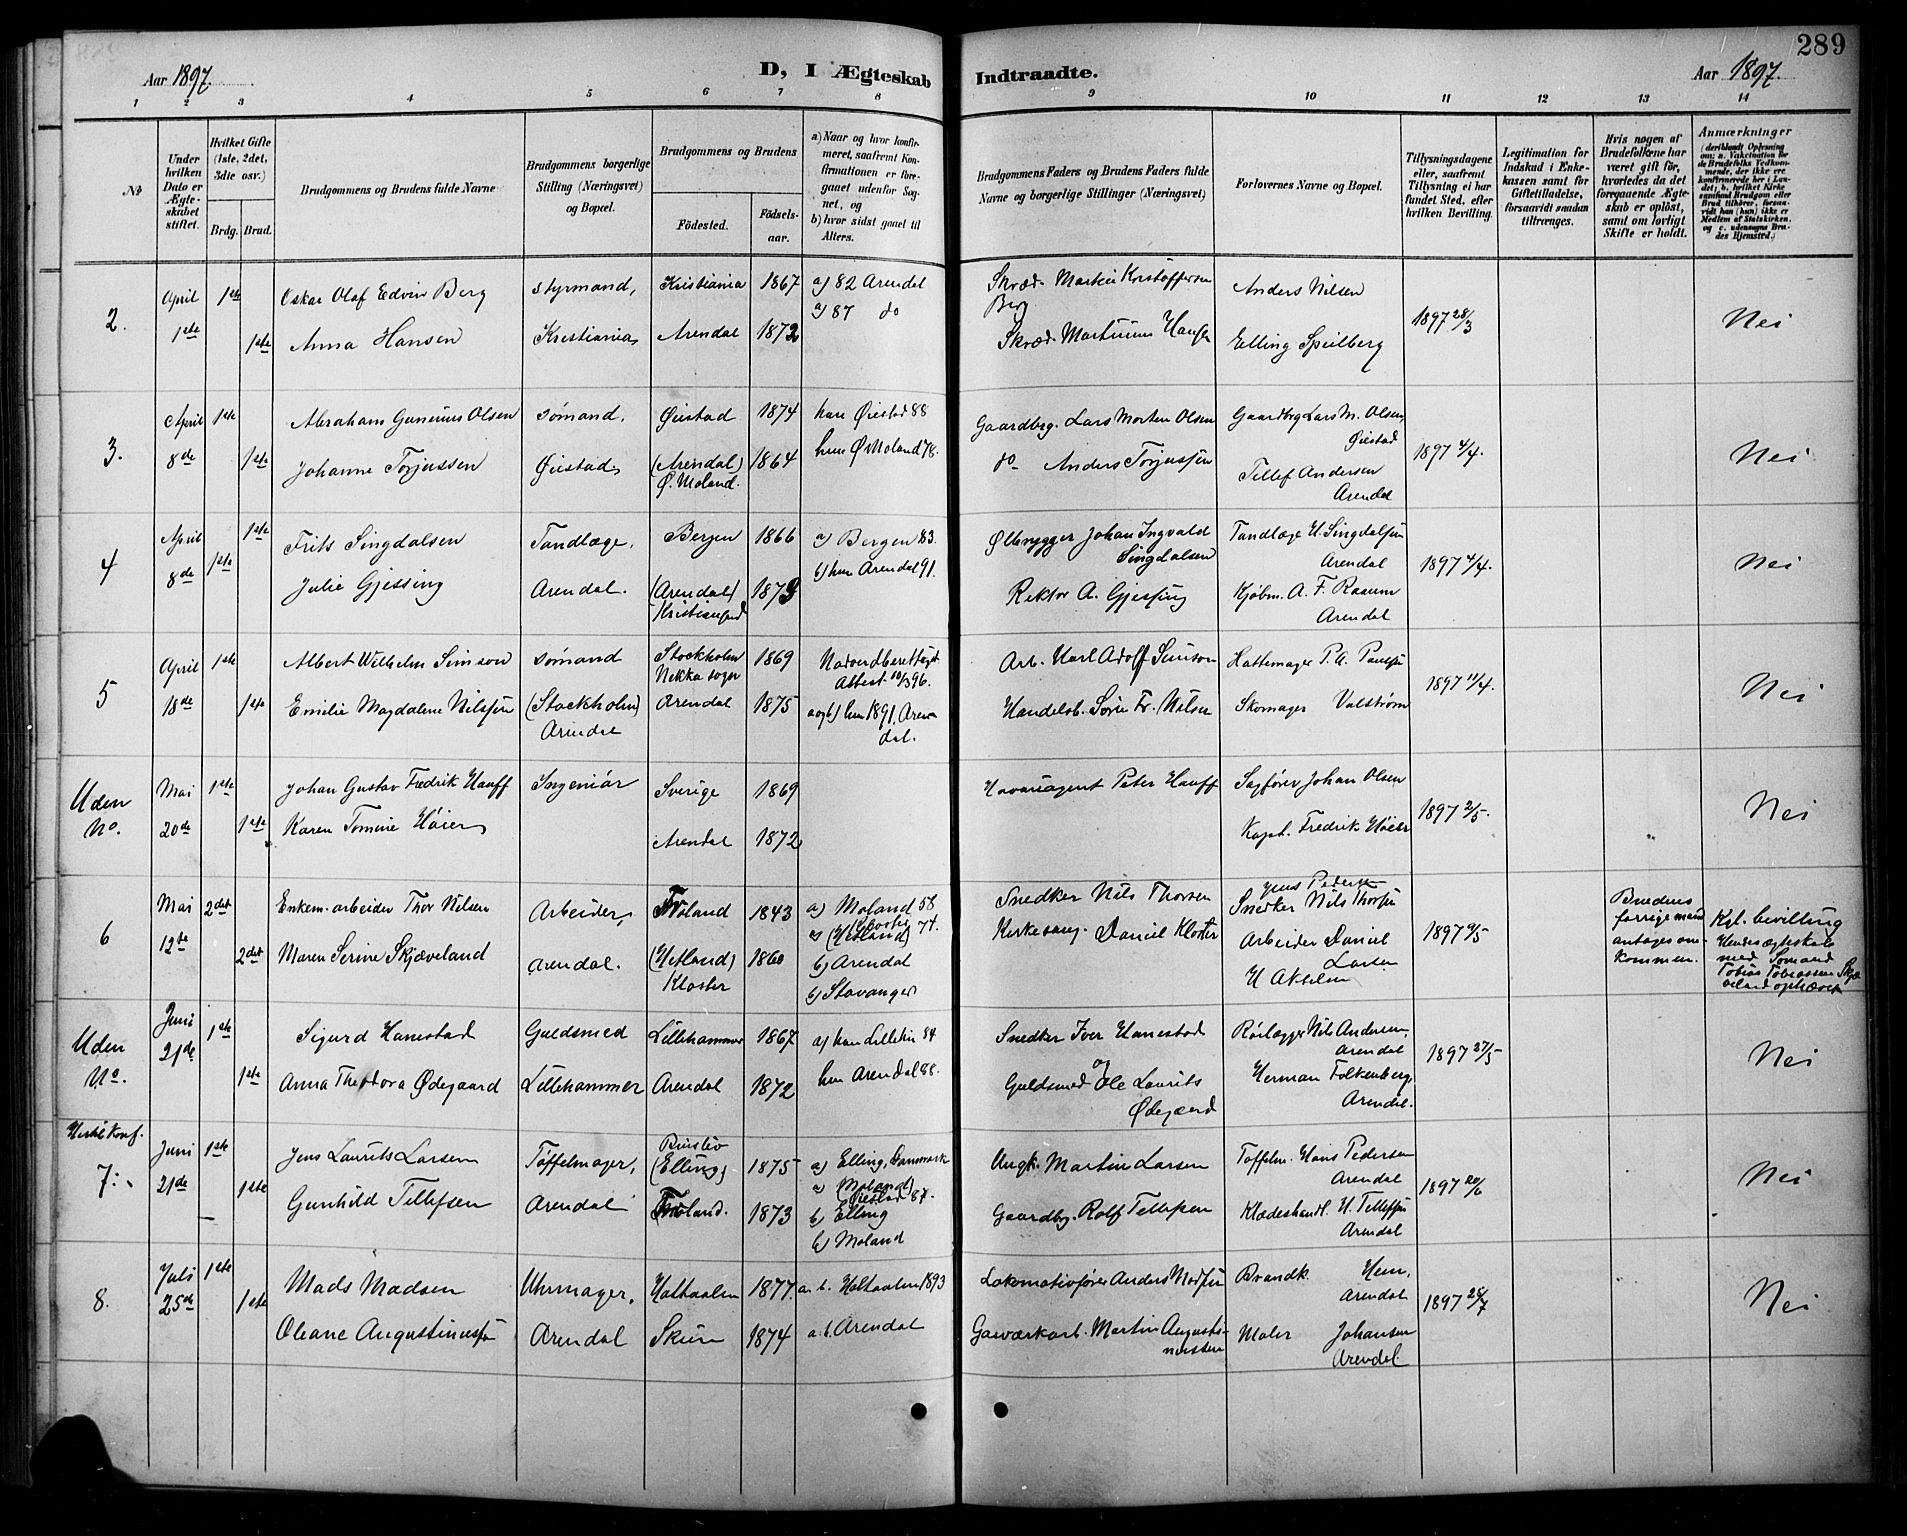 289
Aar 1897.
D, I Ægteskab
Indtraadte.
Aar 1897.
1 2 3 4 5 6 7 8 9 10 11 12 13 14
No
Under hvilken Dato er Ægteskabet stiftet.
Hvilket Gifte (1ste, 2det, 3die osv.)
Brdg. Brud.
Brudgommens og Brudens fulde Navne
Brudgommens borgerlige Stilling (Næringsvei) og Bopæl.
Brudgommens og Brudens
Fødested.
Fødselsaar.
a) Naar og hvor konfirmeret, saafremt Konfirmationen er foregaaet udenfor Sognet, og
b) hvor sidst gaaet til Alters.
Brudgommens Faders og Brudens Faders fulde Navne og borgerlige Stillinger (Næringsvei)
Forlovernes Navne og Bopæl.
Tillysningsdagene eller, saafremt Tillysning ei har fundet Sted, efter hvilken Bevilling.
Legitimation for Indskud i Enkekassen samt for Giftetilladelse, forsaavidt saadan tiltrænges.
Hvis nogen af Brudefolkene har været gift før, hvorledes da det foregaaende Ægteskab er opløst, samt om lovligt Skifte er holdt.
Anmærkninger (deriblandt Oplysning om: a. Vakcination for de Brudefolks Vedkommende, der ikke ere konfirmerede her i Landet; b. hvilket Kirkesamfund Brudgom eller Brud tilhører, forsaavidt han (hun) ikke er Medlem af Statskirken, og c. udensogns Brudes Hjemsted.)
2. April 1ste 1ste Oskar Olaf Edvin Berg styrmand, Kristiania 1867 a) 82 Arendal
1ste Anna Hansen Kristiania, Arendal 1872 a) 87 do
Skræd. Martin Kristoffersen Berg Anders Nilsen 1897 28/3 Nei
Skræd. Hansen Elling Speilberg
3. April 8de 1ste Abraham Gunerius Olsen sømand, Øiestad 1874 ham Øiestad 88
1ste Johanne Torjussen Øiestad, (Arendal) Ø. Moland. 1864 hun Ø Moland 78.
Gaardbrg. Lars Morten Olsen Gaardbrg Lars M. Olsen, Øiestad 1897 4/4. Nei
do- Anders Torjussen Tellef Andersen Arendal
4 April 8de 1ste Frits Singdalsen Tandlæge, Bergen 1866 a) Bergen 83.
1ste Julie Gjessing Arendal. (Arendal) Kristiansand 1873 b) hun Arendal 91.
Ølbrygger Johan Ingvald Singdalsen Tandlæge H. Singdalsen Arendal 1897 4/4. Nei
Rektor A. Gjessing Kjøbm. A. F. Arendal
5 April 18de 1ste Albert Wilhelm Simson sømand Stockholm Nekka sogn 1869 Attest 10/3 96.
1ste Emilie Magdalene Nilssen (Stockholm) Arendal Arendal 1875 a og b) hun 1891, Arendal.
Arb. Karl Adolf Simson Hattemager P. A. 1897 11/4. Nei
Handelsb. Fr. Nilsen Skomager Valstrøm
Uden No. Mai 20de 1ste Johan Gustav Fredrik Hauff Ingeniør Sverige 1869
1ste Karen Tomine Høier, Arendal 1872
Havariagent Peter Hauff Sagfører Johan Olsen 1897 2/5. Nei
Kapt. Fredrik Høier
6 Mai 12te 2det Enkem. arbeider Thor Nilsen Arbeider, Froland 1843 a) Moland 58
a) Kloster (Hetland) 77.
2det Maren Serine Skjæveland Arendal. (Hetland) Kloster 1860 b) Arendal
b) Stavanger
Snedker Nils Thorsen Jens Pedersen Snedker Nils Thorsen 1897 9/5
Kirkesang. Daniel Kloster Arbeider Daniel Larsen
H Akselsen
Brudens forrige mand antages omkommen.
Kgl. bevilling Hendes ægteskab med Sømand Tobias Tobiassen Skjæveland ophævet
Uden No. Juni 21de 1ste Sigurd Hanestad Guldsmed Lillehammer 1867 a) han Lillehm 84
1ste Anna Theodora Ødegaard Lillehammer Arendal 1872 hun Arendal 88.
Snedker Iver Hanestad Rørlægger Nils Andersen, Arendal 1897 27/5 Nei
og
Guldsmed Ole Laurits Ødegaard Herman Falkenberg, Arendal.
7. Juni 21de 1ste Jens Laurits Larsen Tøffelmager, (Elling) 1875 a) Elling, Danmark
a) (Moland) Øiestad 87.
1ste Gunhild Tellefsen Arendal Froland. 1873 b) Elling
b) Moland
Ungk. Martin Larsen Tøffelm. Hans Pedersen Arendal 1897 20/6 Nei
Gaardbg. Rolf Tellefsen Klædeshandl. H. Tellefsen Arendal
8. Juli 25de 1ste Mads Madsen Uhrmager, Holtaalen 1877. a. b. Holtaalen 1893
1ste Oleane Augustinussen Arendal Skien 1874 a. b. Arendal
Lokomotivfører Anders Madsen Brandk. Hem, Arendal 1897 28/7 Nei
Gasværkarb. Martin Augustinussen Maler Johansen Arendal.